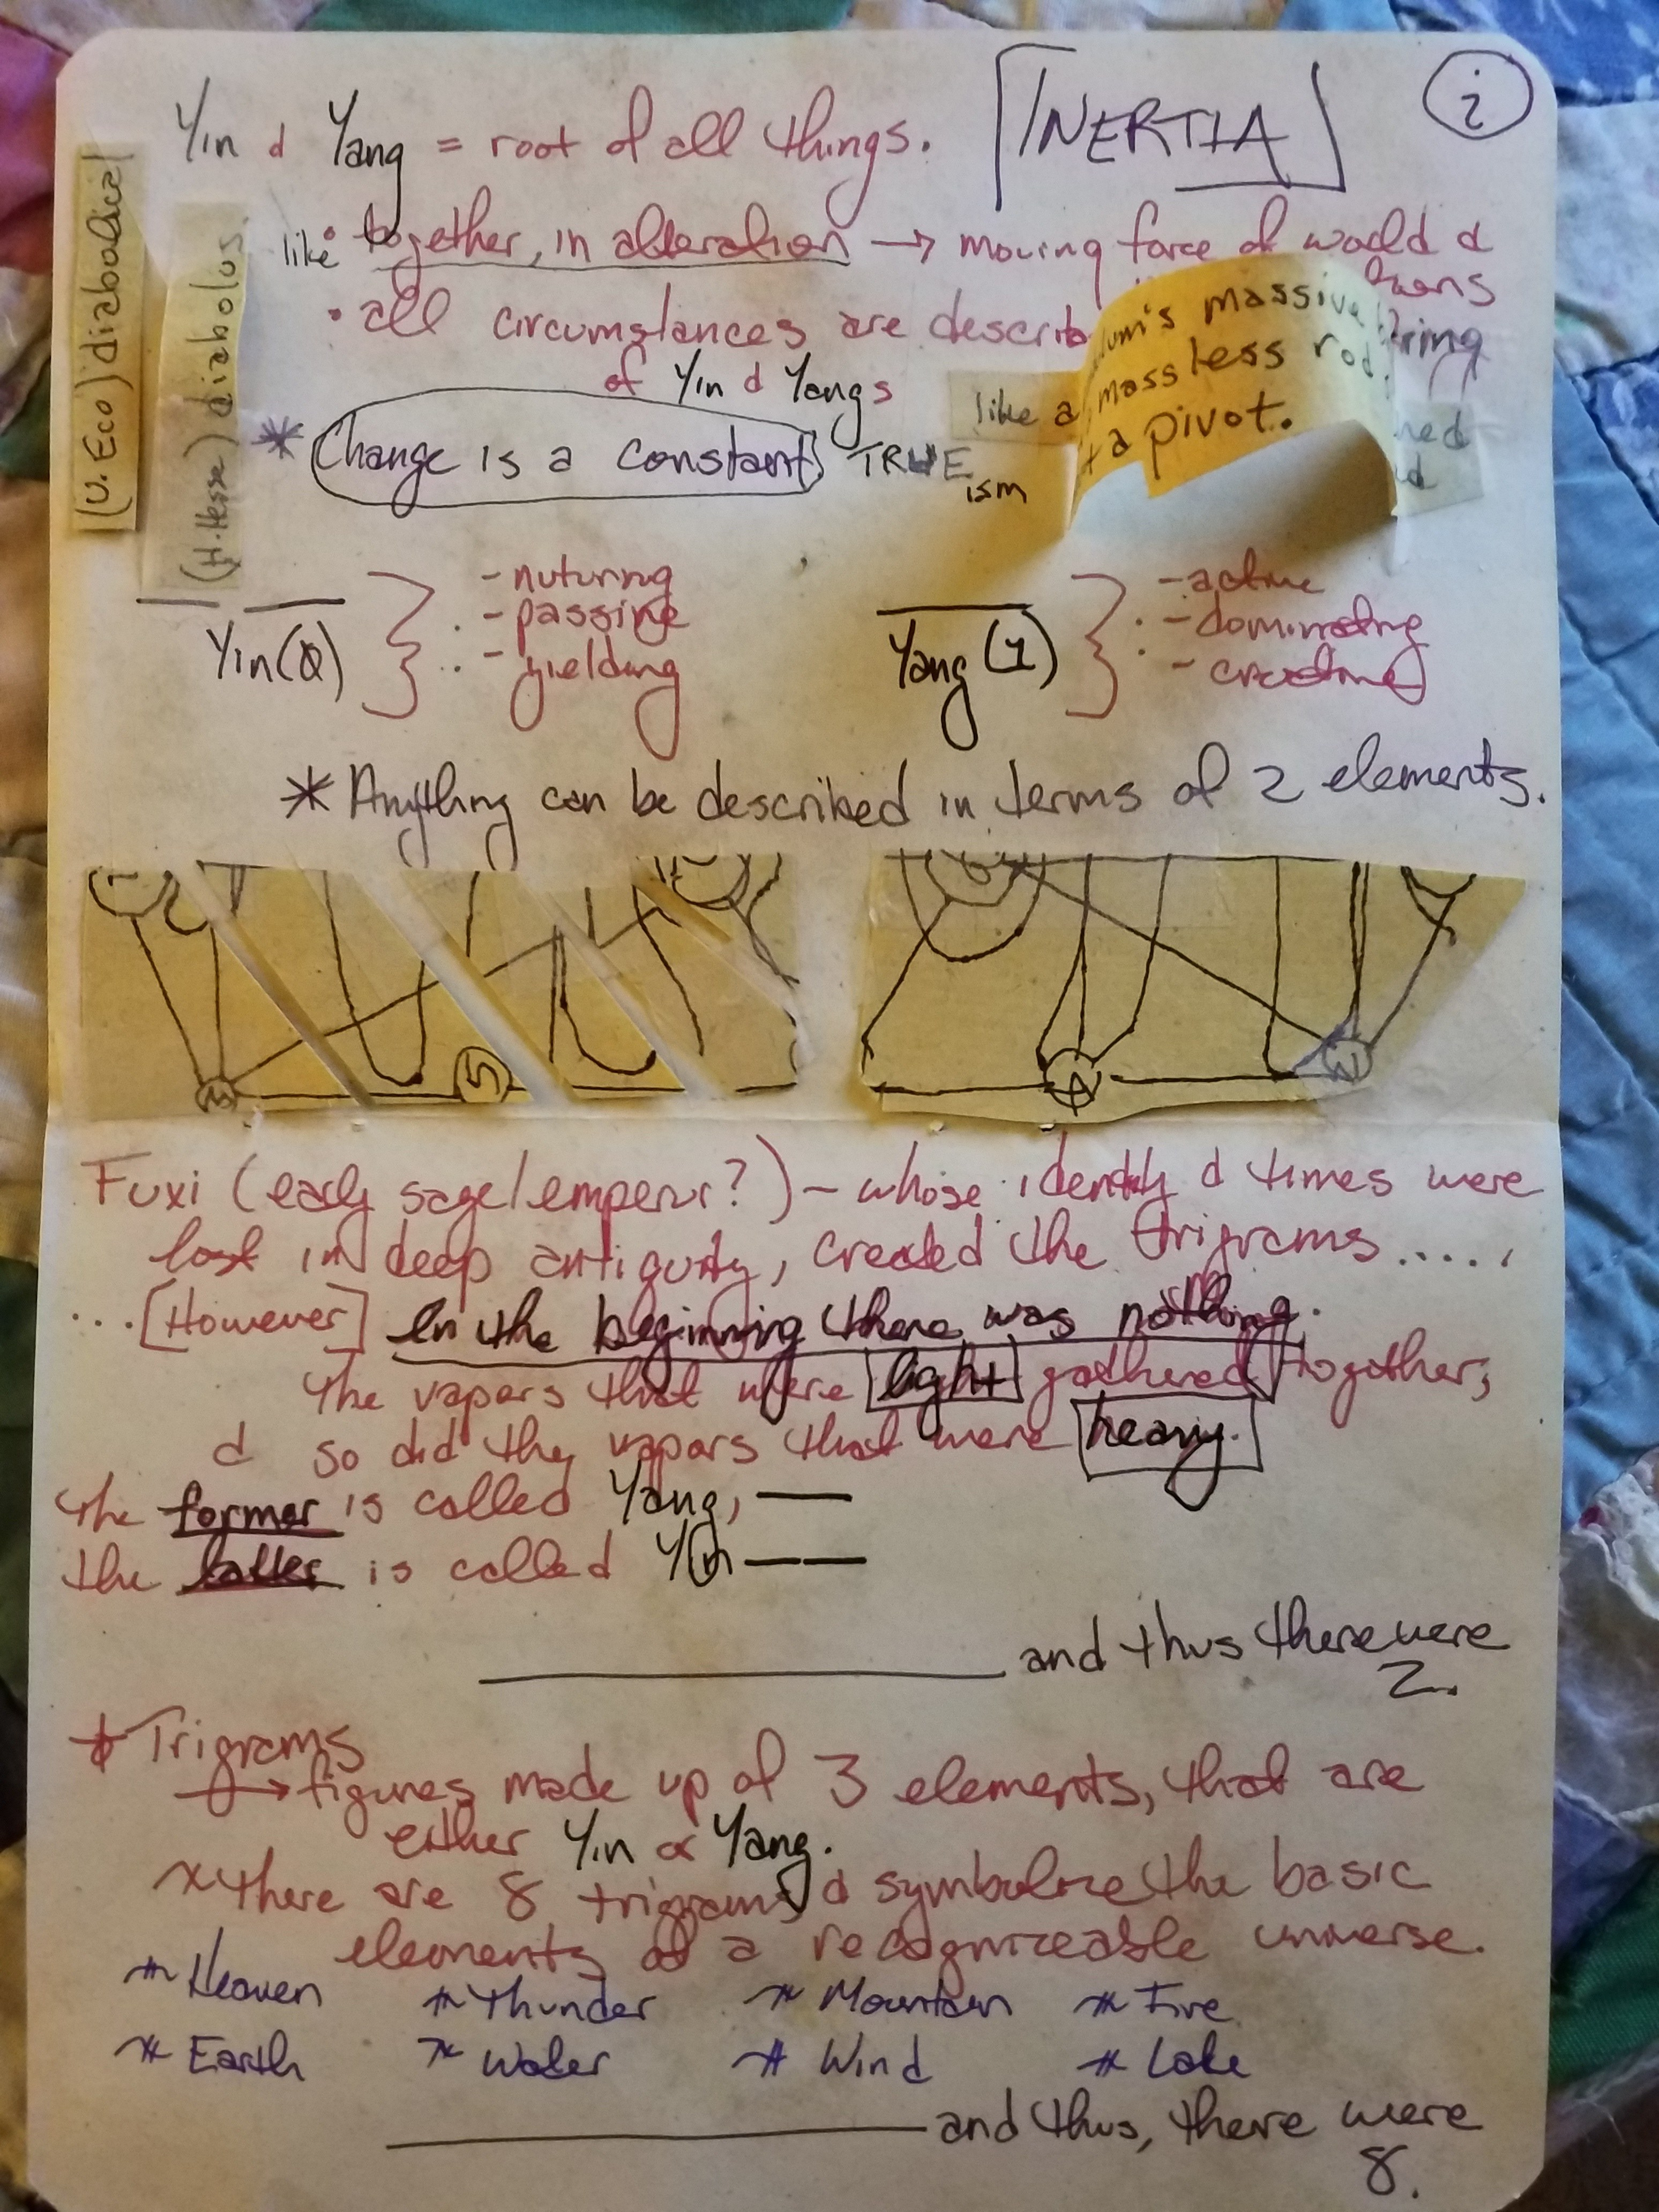 Yin & Yang = root of all things. [INERTIA] i
(U. Eco) diabolical
(H. Hesse) diabolus
like • together, in alteration → moving force of world &
• all circumstances are describ
of Yin & Yangs
um's massive
massless rod,
a pivot.
like a
* Change is a constant TRUEism
Yin (0) } : - nuturing
- passive
- yielding
Yang (1) } : - active
- dominating
- creative
* Anything can be described in terms of 2 elements.
3 5 A N
Fuxi (early sage/emperur?) – whose identity & times were
lost in deep antiquity, created the trigrams.....
...[However] In the beginning there was nothing.
The vapors that were light gathered together,
& so did the vapors that were heavy.
the former is called Yang, —
the latter is called Yin — —
and thus there were
2.
* Trigrams
→ figures made up of 3 elements, that are
either Yin or Yang.
* there are 8 trigrams & symbolize the basic
elements of a recognizeable universe.
* Heaven * Thunder * Mountain * Fire
* Earth * Water * Wind * Lake
and thus, there were
8.